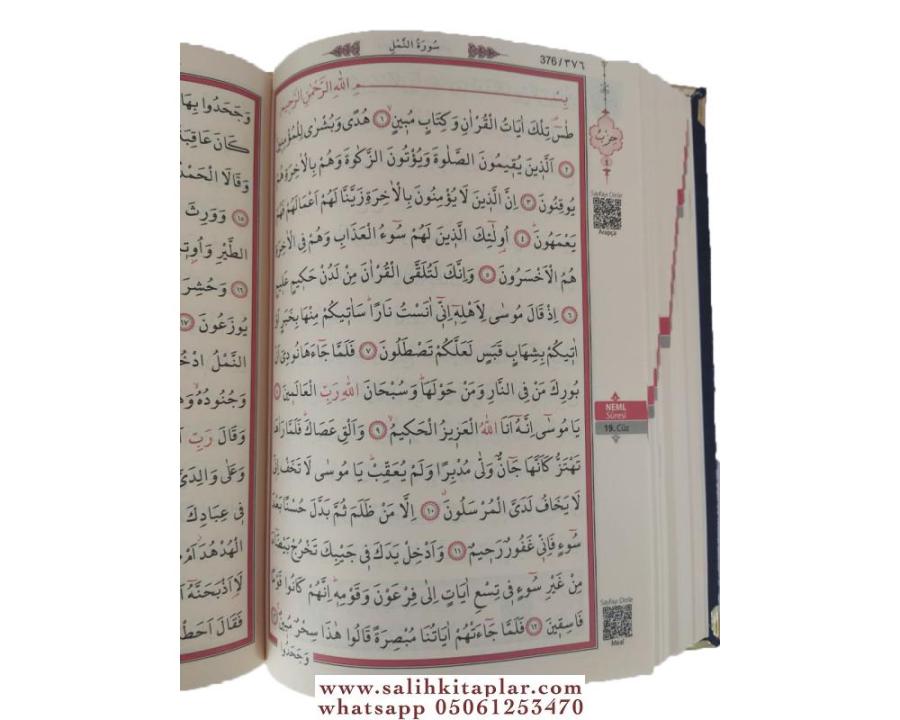 سُورَةُ النَّمْلِ
376/٣٧٦
بِسْمِ اللّٰهِ الرَّحْمٰنِ الرَّحٖيمِ
طٰسٓ تِلْكَ اٰيَاتُ الْقُرْاٰنِ وَكِتَابٍ مُبٖينٍۙ ﴿١﴾ هُدًى وَبُشْرٰى لِلْمُؤْمِنٖينَۙ
﴿٢﴾ اَلَّذٖينَ يُقٖيمُونَ الصَّلٰوةَ وَيُؤْتُونَ الزَّكٰوةَ وَهُمْ بِالْاٰخِرَةِ هُمْ
يُوقِنُونَ ﴿٣﴾ اِنَّ الَّذٖينَ لَا يُؤْمِنُونَ بِالْاٰخِرَةِ زَيَّنَّا لَهُمْ اَعْمَالَهُمْ فَهُمْ
يَعْمَهُونَۜ ﴿٤﴾ اُولٰٓئِكَ الَّذٖينَ لَهُمْ سُٓوءُ الْعَذَابِ وَهُمْ فِي الْاٰخِرَةِ
هُمُ الْاَخْسَرُونَ ﴿٥﴾ وَاِنَّكَ لَتُلَقَّى الْقُرْاٰنَ مِنْ لَدُنْ حَكٖيمٍ عَلٖيمٍ
﴿٦﴾ اِذْ قَالَ مُوسٰى لِاَهْلِهٖٓ اِنّٖٓي اٰنَسْتُ نَارًاۜ سَاٰتٖيكُمْ مِنْهَا بِخَبَرٍ اَوْ
اٰتٖيكُمْ بِشِهَابٍ قَبَسٍ لَعَلَّكُمْ تَصْطَلُونَ ﴿٧﴾ فَلَمَّا جَٓاءَهَا نُودِيَ اَنْ
بُورِكَ مَنْ فِي النَّارِ وَمَنْ حَوْلَهَاۜ وَسُبْحَانَ اللّٰهِ رَبِّ الْعَالَمٖينَ
يَا مُوسٰٓى اِنَّهُٓ اَنَا اللّٰهُ الْعَزٖيزُ الْحَكٖيمُۙ ﴿٩﴾ وَاَلْقِ عَصَاكَۜ فَلَمَّا رَاٰهَا
تَهْتَزُّ كَاَنَّهَا جَٓانٌّ وَلّٰى مُدْبِرًا وَلَمْ يُعَقِّبْۜ يَا مُوسٰى لَا تَخَفْ اِنّٖي
لَا يَخَافُ لَدَيَّ الْمُرْسَلُونَۗ ﴿١٠﴾ اِلَّا مَنْ ظَلَمَ ثُمَّ بَدَّلَ حُسْنًا بَعْدَ
سُٓوءٍ فَاِنّٖي غَفُورٌ رَحٖيمٌ ﴿١١﴾ وَاَدْخِلْ يَدَكَ فٖي جَيْبِكَ تَخْرُجْ بَيْضَٓاءَ
مِنْ غَيْرِ سُٓوءٍ فٖي تِسْعِ اٰيَاتٍ اِلٰى فِرْعَوْنَ وَقَوْمِهٖۜ اِنَّهُمْ كَانُوا قَوْمًا
فَاسِقٖينَ ﴿١٢﴾ فَلَمَّا جَٓاءَتْهُمْ اٰيَاتُنَا مُبْصِرَةً قَالُوا هٰذَا سِحْرٌ مُبٖينٌ
وَجَحَدُوا
حزب
٤
Sayfayı Dinle
Arapça
NEML
Sûresi
19. Cüz
Sayfayı Dinle
Meal
وَجَحَدُوا بِهَا
كَانَ عَاقِبَةُ
وَقَالَا الْحَمْدُ
﴿١٥﴾ وَوَرِثَ
الطَّيْرِ وَاُوتٖينَا
﴿١٦﴾ وَحُشِرَ
يُوزَعُونَ ﴿١٧﴾
النَّمْلُ ادْخُلُوا
وَجُنُودُهُۙ وَهُمْ
وَقَالَ رَبِّ
وَعَلٰى وَالِدَيَّ
فٖي عِبَادِكَ
الْهُدْهُدَۘ اَمْ
لَاَاذْبَحَنَّهُٓ
فَقَالَ اَحَطْتُ
www.salihkitaplar.com
whatsapp 05061253470